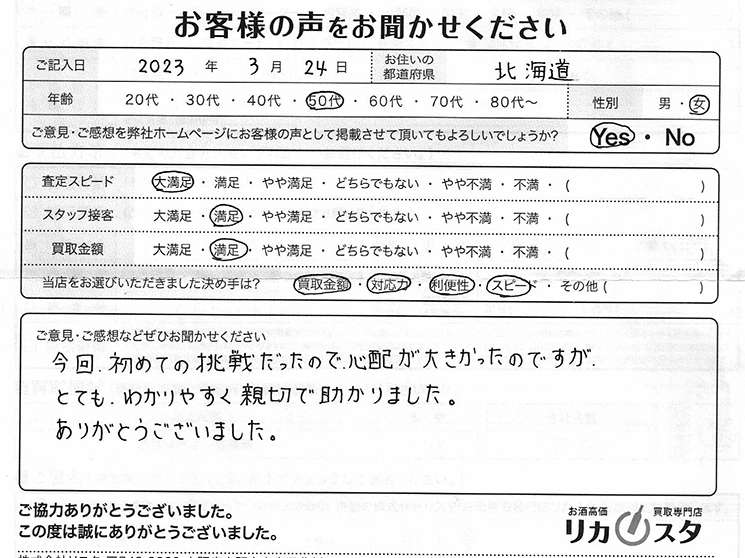 お客様の声をお聞かせください
ご記入日 2023 年 3 月 24 日 お住いの都道府県 北海道
年齢 20代 ・ 30代 ・ 40代 ・ 50代 ・ 60代 ・ 70代 ・ 80代〜 性別 男 ・ 女
ご意見・ご感想を弊社ホームページにお客様の声として掲載させて頂いてもよろしいでしょうか? Yes ・ No
査定スピード 大満足 ・ 満足 ・ やや満足 ・ どちらでもない ・ やや不満 ・ 不満 ・ ( )
スタッフ接客 大満足 ・ 満足 ・ やや満足 ・ どちらでもない ・ やや不満 ・ 不満 ・ ( )
買取金額 大満足 ・ 満足 ・ やや満足 ・ どちらでもない ・ やや不満 ・ 不満 ・ ( )
当店をお選びいただきました決め手は? 買取金額 ・ 対応力 ・ 利便性 ・ スピード ・ その他 ( )
ご意見・ご感想などぜひお聞かせください
今回、初めての挑戦だったので、心配が大きかったのですが、
とても、わかりやすく親切で助かりました。
ありがとうございました。
ご協力ありがとうございました。
この度は誠にありがとうございました。
お酒高価 買取専門店
リカスタ